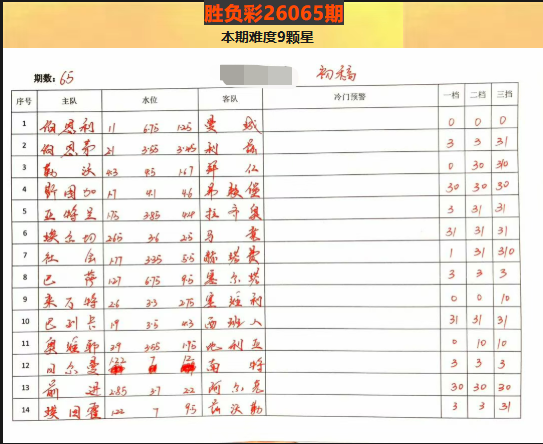 胜负彩26065期
本期难度9颗星
期数：65 初稿
序号 主队 水位 客队 冷门预警 一档 二档 三档
1 伯恩利 11 6.75 1.25 曼城 0 0 0
2 伯恩茅 2.1 3.55 3.45 利兹 3 3 31
3 勒沃 4.3 4.5 1.67 拜仁 0 30 310
4 斯图加 1.7 4.1 4.6 弗赖堡 30 30 30
5 亚特兰 1.75 3.85 4.4 拉齐奥 3 31 31
6 埃尔切 2.65 3.6 2.5 马竞 31 31 31
7 杜法 1.77 3.35 5.5 赫塔费 1 31 310
8 巴萨 1.27 6.75 9.5 塞尔塔 3 3 3
9 莱万特 2.6 3.3 2.75 塞维利 0 0 10
10 巴列卡 1.9 3.5 4.3 西班人 31 31 31
11 奥维耶 3.9 3.55 1.95 比利亚 0 10 10
12 日尔曼 1.22 7 12 南特 3 3 3
13 前进 2.85 3.7 2.2 阿尔克 30 30 30
14 埃因霍 1.22 7 9.5 兹沃勒 3 3 31